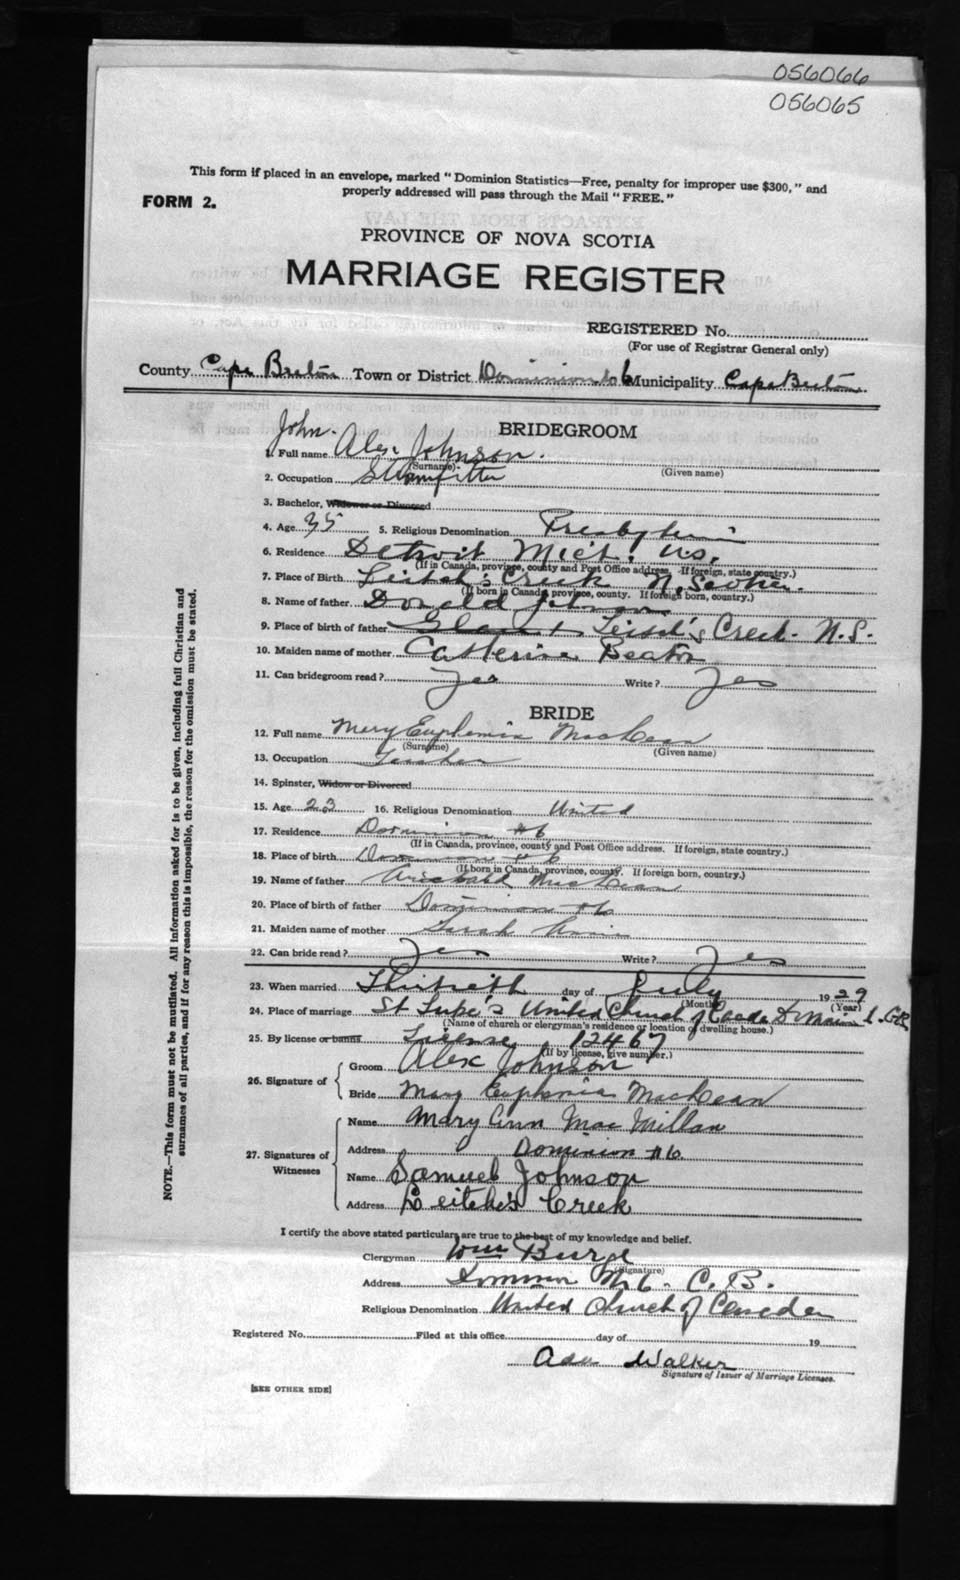 056066
056065
This form if placed in an envelope, marked "Dominion Statistics—Free, penalty for improper use $300," and
properly addressed will pass through the Mail "FREE."
FORM 2.
PROVINCE OF NOVA SCOTIA
MARRIAGE REGISTER
REGISTERED No.
(For use of Registrar General only)
County Cape Breton Town or District Dominion No 6 Municipality Cape Breton
BRIDEGROOM
John
1. Full name Alex Johnson.
(Surname) (Given name)
2. Occupation Steamfitter
3. Bachelor, Widower or Divorced
4. Age 35 5. Religious Denomination Presbyterian
6. Residence Detroit Mich. U.S.
(If in Canada, province, county and Post Office address. If foreign, state country.)
7. Place of Birth Leitch's Creek N. Scotia.
(If born in Canada, province, county. If foreign born, country.)
8. Name of father Donald Johnson
9. Place of birth of father Leitch's Creek. N.S.
10. Maiden name of mother Catherine Beaton
11. Can bridegroom read? Yes Write? Yes
BRIDE
12. Full name Mary Euphemia MacLean
(Surname) (Given name)
13. Occupation Teacher
14. Spinster, Widow or Divorced
15. Age 23 16. Religious Denomination United
17. Residence Dominion #6
(If in Canada, province, county and Post Office address. If foreign, state country.)
18. Place of birth Dominion #6
(If born in Canada, province, county. If foreign born, country.)
19. Name of father Archibald MacLean
20. Place of birth of father Dominion #6
21. Maiden name of mother Sarah Annie
22. Can bride read? Yes Write? Yes
23. When married Thirtieth day of July 1929
(Month) (Year)
24. Place of marriage St Luke's United Church of Canada Dominion
(Name of church or clergyman's residence or location of dwelling house.)
25. By license or banns License 12467
(If by license, give number.)
26. Signature of
Groom Alex Johnson
Bride Mary Euphemia MacLean
27. Signatures of Witnesses
Name Mary Ann MacMillan
Address Dominion #6
Name Samuel Johnson
Address Leitches Creek
I certify the above stated particulars are true to the best of my knowledge and belief.
Clergyman Wm Burd
(Signature)
Address Dominion No 6. C.B.
Religious Denomination United Church of Canada
Registered No. Filed at this office day of 19
Ada Walker
Signature of Issuer of Marriage Licenses.
[SEE OTHER SIDE]
NOTE.—This form must not be mutilated. All information asked for is to be given, including full Christian and
surnames of all parties, and if for any reason this is impossible, the reason for the omission must be stated.